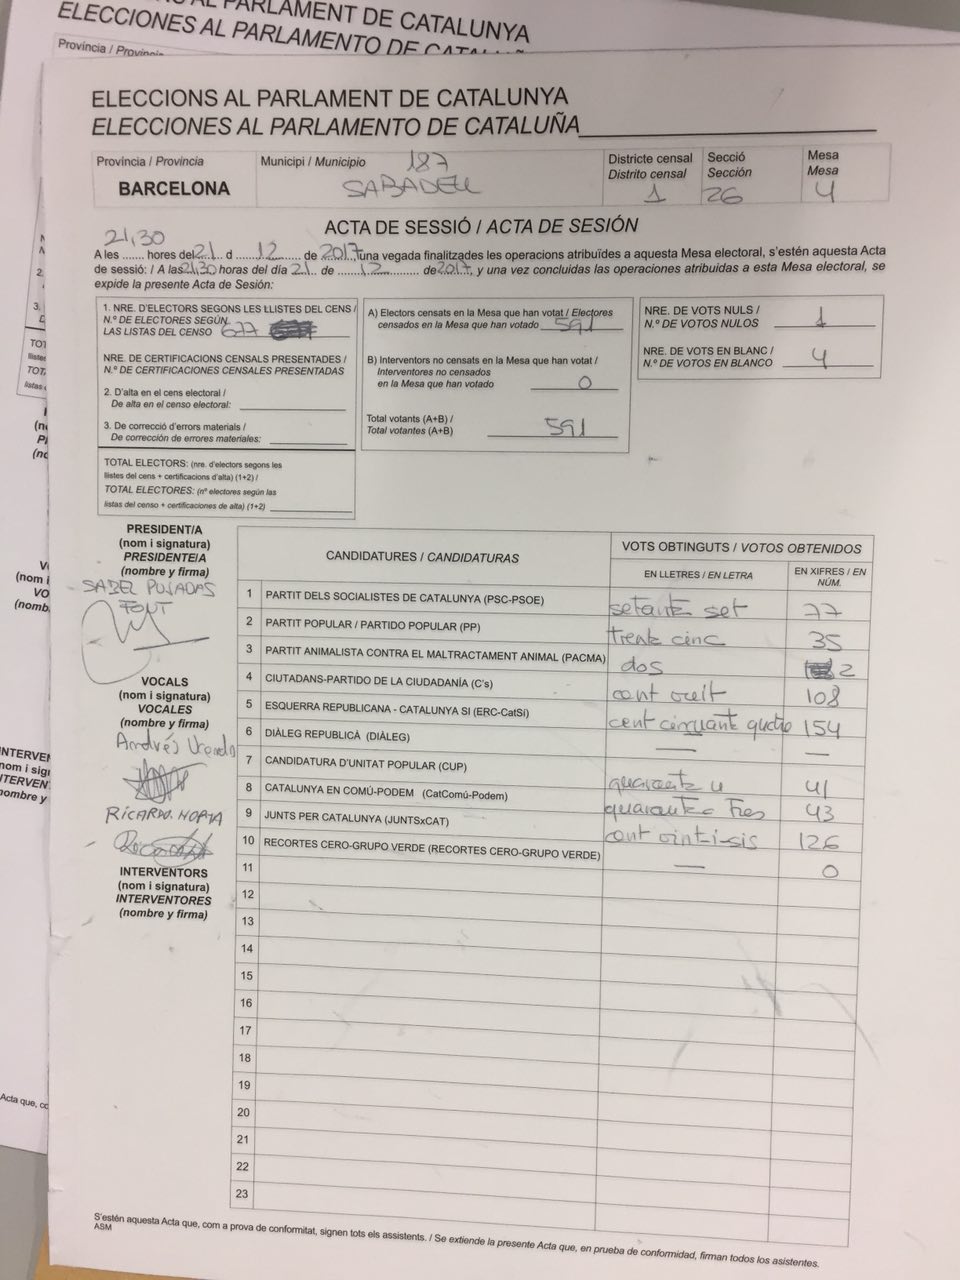 ELECCIONES AL PARLAMENTO DE
Província /
ELECCIONS AL PARLAMENT DE CATALUNYA
ELECCIONES AL PARLAMENTO DE CATALUÑA
Província / Provincia
BARCELONA
Municipi / Municipio 187
SABADELL
Districte censal
Distrito censal
1
Secció
Sección
26
Mesa
Mesa
4
ACTA DE SESSIÓ / ACTA DE SESIÓN
21,30
A les ....... hores del 21 d 12 de 2017, una vegada finalitzades les operacions atribuïdes a aquesta Mesa electoral, s'estén aquesta Acta
de sessió: / A las 21,30 horas del día 21 de 12 de 2017, y una vez concluidas las operaciones atribuidas a esta Mesa electoral, se
expide la presente Acta de Sesión:
1. NRE. D'ELECTORS SEGONS LES LLISTES DEL CENS /
N.º DE ELECTORES SEGÚN
LAS LISTAS DEL CENSO 677
NRE. DE CERTIFICACIONS CENSALS PRESENTADES /
N.º DE CERTIFICACIONES CENSALES PRESENTADAS
2. D'alta en el cens electoral /
De alta en el censo electoral:
3. De correcció d'errors materials /
De corrección de errores materiales:
TOTAL ELECTORS: (nre. d'electors segons les
llistes del cens + certificacions d'alta) (1+2) /
TOTAL ELECTORES: (nº electores según las
listas del censo + certificaciones de alta) (1+2)
A) Electors censats en la Mesa que han votat / Electores
censados en la Mesa que han votado 591
B) Interventors no censats en la Mesa que han votat /
Interventores no censados
en la Mesa que han votado 0
Total votants (A+B) /
Total votantes (A+B) 591
NRE. DE VOTS NULS /
N.º DE VOTOS NULOS 1
NRE. DE VOTS EN BLANC /
N.º DE VOTOS EN BLANCO 4
PRESIDENT/A
(nom i signatura)
PRESIDENTE/A
(nombre y firma)
SABEL PUJADAS
FONT
VOCALS
(nom i signatura)
VOCALES
(nombre y firma)
Andrés
RICARDO
INTERVENTORS
(nom i signatura)
INTERVENTORES
(nombre y firma)
CANDIDATURES / CANDIDATURAS
VOTS OBTINGUTS / VOTOS OBTENIDOS
EN LLETRES / EN LETRA
EN XIFRES / EN NÚM.
1 PARTIT DELS SOCIALISTES DE CATALUNYA (PSC-PSOE) setanta set 77
2 PARTIT POPULAR / PARTIDO POPULAR (PP) trenta cinc 35
3 PARTIT ANIMALISTA CONTRA EL MALTRACTAMENT ANIMAL (PACMA) dos 2
4 CIUTADANS-PARTIDO DE LA CIUDADANÍA (C's) cent vuit 108
5 ESQUERRA REPUBLICANA - CATALUNYA SI (ERC-CatSí) cent cinquanta quatre 154
6 DIÀLEG REPUBLICÀ (DIÀLEG) — —
7 CANDIDATURA D'UNITAT POPULAR (CUP) quaranta u 41
8 CATALUNYA EN COMÚ-PODEM (CatComú-Podem) quaranta Tres 43
9 JUNTS PER CATALUNYA (JUNTSxCAT) cent vint-i-sis 126
10 RECORTES CERO-GRUPO VERDE (RECORTES CERO-GRUPO VERDE) — 0
11
12
13
14
15
16
17
18
19
20
21
22
23
S'estén aquesta Acta que, com a prova de conformitat, signen tots els assistents. / Se extiende la presente Acta que, en prueba de conformidad, firman todos los asistentes.
ASM